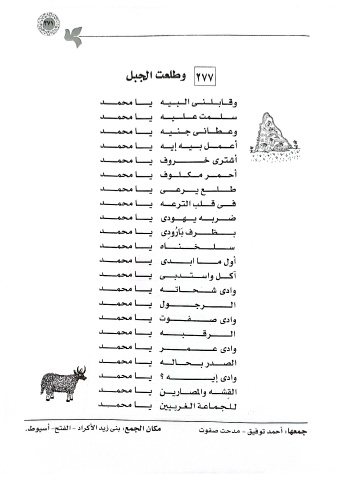 ٢٧٧ وطلعت الجبل
وقابلنى البيه يا محمد
سلمت عليه يا محمد
وعطانى جنيه يا محمد
أعمل بيه إيه يا محمد
أشترى خروف يا محمد
أحمر مكلوف يا محمد
طلع يرعى يا محمد
فى قلب الترعه يا محمد
ضربه يهودى يا محمد
بظرف بارُودى يا محمد
سلخناه يا محمد
أول ما ابدى يا محمد
آكل واستدبى يا محمد
وادى شحاته يا محمد
الرجول يا محمد
وادى صفوت يا محمد
الرقبه يا محمد
وادى عمر يا محمد
الصدر بحاله يا محمد
وادى إيه ؟ يا محمد
القشه والمصارين يا محمد
للجماعة الغربيين يا محمد
جمعها: أحمد توفيق - مدحت صفوت مكان الجمع: بنى زيد الأكراد - الفتح- أسيوط.